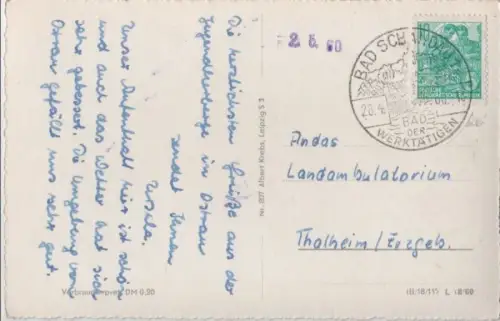 Die herzlichsten Grüße aus der
Jugendherberge in Ostrau
sendet Ihnen
Ursula.
Unser Aufenthalt hier ist schön
und auch das Wetter hat sich
sehr gebessert. Die Umgebung von
Ostrau gefällt uns sehr gut.
Verbraucherpreis DM 0,20
Nr. 807 Albert Krebs, Leipzig S 3
2 5. 60
BAD SCHANDAU
28.4.60
BAD
DER
WERKTÄTIGEN
10
An das
Landambulatorium
Thalheim/Erzgeb.
(III/18/117) L 18/60